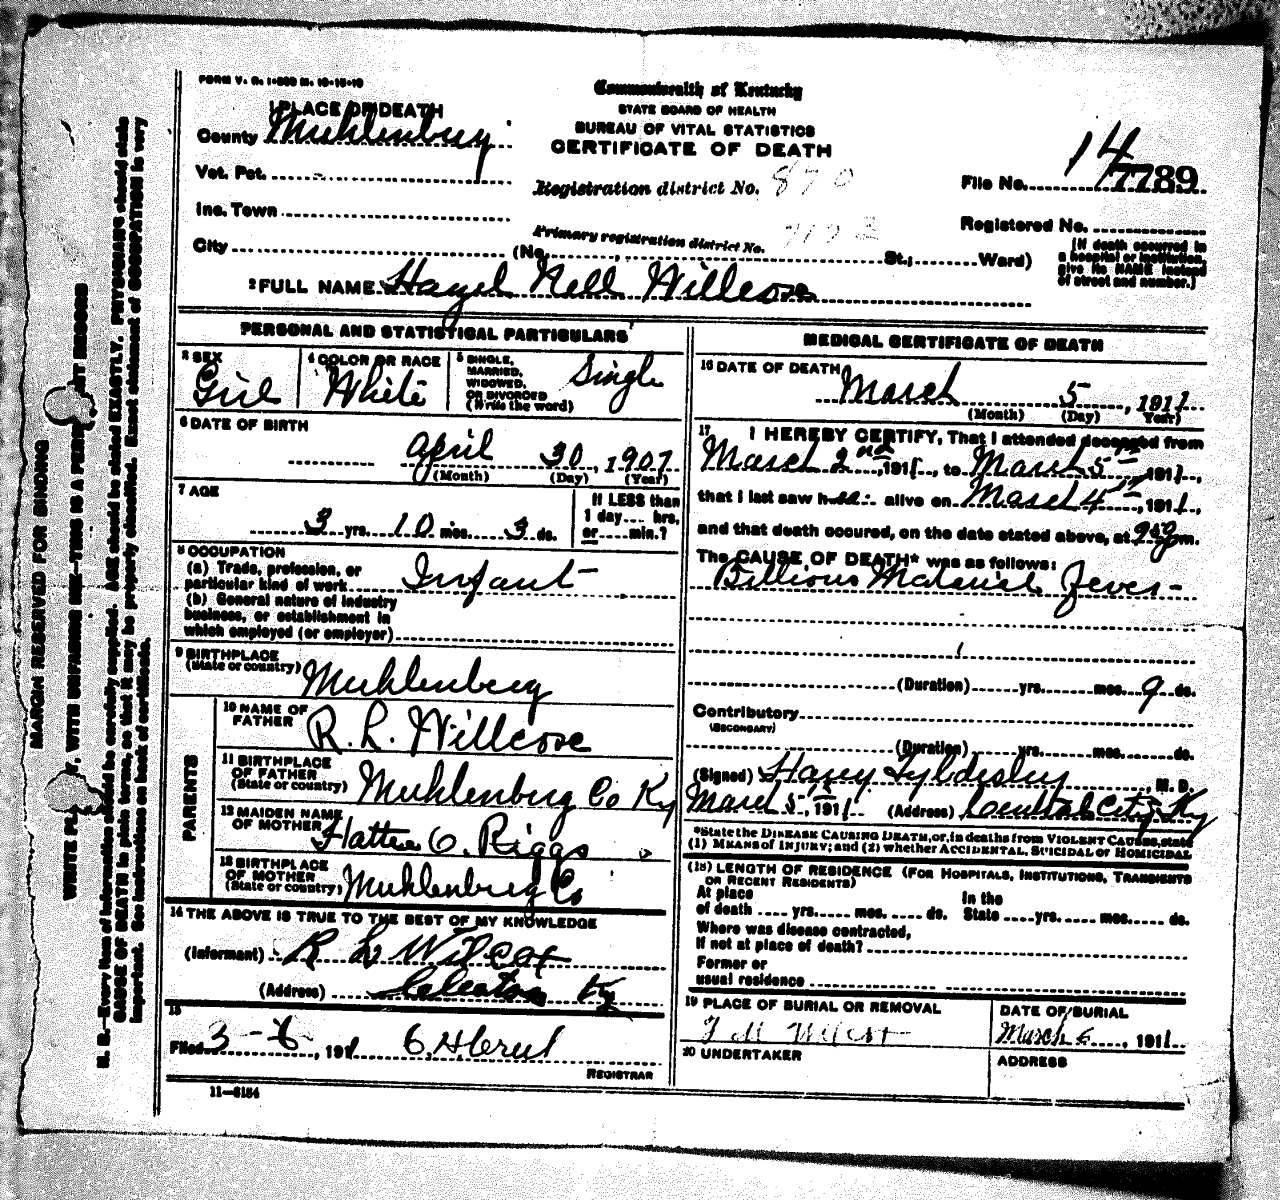 FORM V. S. 1-300 M. 10-15-10
Commonwealth of Kentucky
STATE BOARD OF HEALTH
BUREAU OF VITAL STATISTICS
CERTIFICATE OF DEATH
1 PLACE OF DEATH
County Muhlenberg
Vot. Pct.
Inc. Town
City (No. , St.; Ward)
Registration district No. 870
Primary registration district No.
14
File No. 7789
Registered No.
[If death occurred in
a hospital or institution,
give its NAME instead
of street and number.]
2 FULL NAME Hazel Nell Willcox
PERSONAL AND STATISTICAL PARTICULARS
3 SEX
Girl
4 COLOR OR RACE
White
5 SINGLE,
MARRIED,
WIDOWED,
OR DIVORCED
(Write the word)
Single
6 DATE OF BIRTH
April 30, 1907
(Month) (Day) (Year)
7 AGE
3 yrs. 10 mos. 3 ds.
If LESS than
1 day.... hrs.
or.....min.?
8 OCCUPATION
(a) Trade, profession, or
particular kind of work Infant
(b) General nature of industry
business, or establishment in
which employed (or employer)
9 BIRTHPLACE
(State or country) Muhlenberg
PARENTS
10 NAME OF
FATHER R. L. Willcox
11 BIRTHPLACE
OF FATHER
(State or country) Muhlenberg Co Ky
12 MAIDEN NAME
OF MOTHER Hattie O. Riggs
13 BIRTHPLACE
OF MOTHER
(State or country) Muhlenberg Co
14 THE ABOVE IS TRUE TO THE BEST OF MY KNOWLEDGE
(Informant) R L Wilcox
(Address) Cleaton Ky
15
Filed 3-6, 1911
REGISTRAR
11-6184
MEDICAL CERTIFICATE OF DEATH
16 DATE OF DEATH
March 5, 1911
(Month) (Day) (Year)
17 I HEREBY CERTIFY, That I attended deceased from
March 2nd, 1911, to March 5th, 1911,
that I last saw her alive on March 4th, 1911,
and that death occured, on the date stated above, at m.
The CAUSE OF DEATH* was as follows:
Billious Malarial Fever
(Duration) yrs. mos. 9 ds.
Contributory
(SECONDARY)
(Duration) yrs. mos. ds.
(Signed) Harry Tyldesley M. D.
March 5th, 1911 (Address) Central City Ky
*State the DISEASE CAUSING DEATH, or, in deaths from VIOLENT CAUSES, state
(1) MEANS OF INJURY; and (2) whether ACCIDENTAL, SUICIDAL OR HOMICIDAL
(18) LENGTH OF RESIDENCE (FOR HOSPITALS, INSTITUTIONS, TRANSIENTS
OR RECENT RESIDENTS)
At place
of death .... yrs. mos. .... ds.
In the
State .... yrs. mos. ds.
Where was disease contracted,
If not at place of death?
Former or
usual residence
19 PLACE OF BURIAL OR REMOVAL
DATE OF BURIAL
March 6, 1911
20 UNDERTAKER
ADDRESS
MARGIN RESERVED FOR BINDING
WITH UNFADING INK—THIS IS A
N. B.—Every item of information should be carefully supplied. AGE should be stated EXACTLY. PHYSICIANS should state
CAUSE OF DEATH in plain terms, so that it may be properly classified. Exact statement of OCCUPATION is very
important. See instructions on back of certificate.